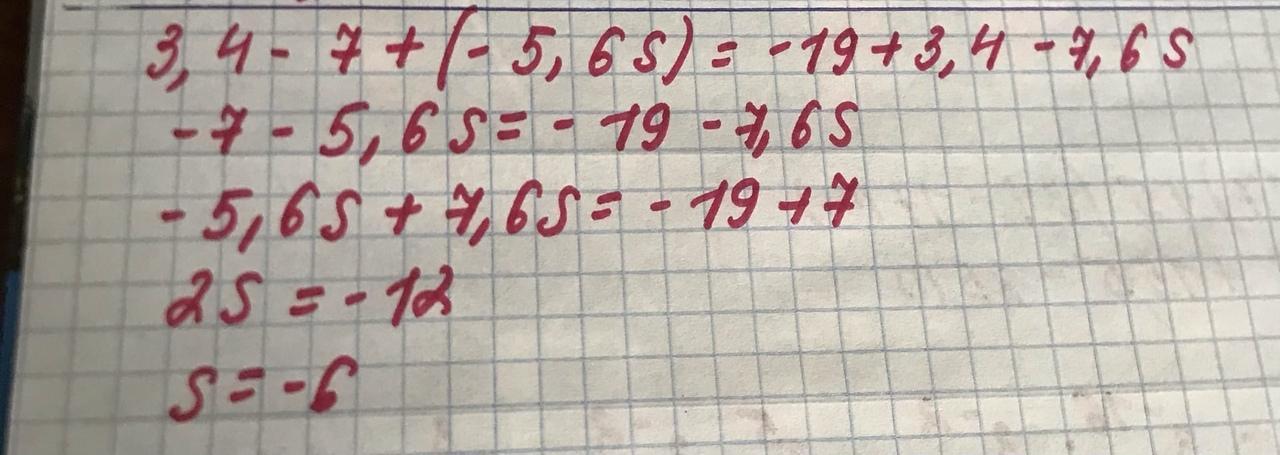 3,4 - 7 + (- 5,6 s) = -19 + 3,4 - 7,6 s
- 7 - 5,6 s = - 19 - 7,6 s
- 5,6 s + 7,6 s = - 19 + 7
2 s = - 12
s = - 6